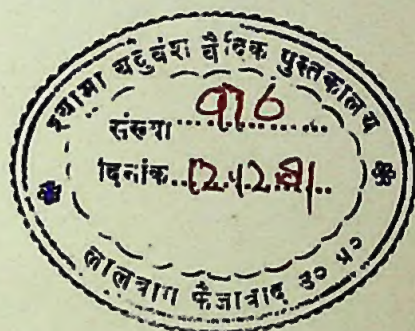 श्यामा यदुवंश वैदिक पुस्तकालय
संख्या 976
दिनांक 12.4.2
लालबाग फैजाबाद उ० प्र०